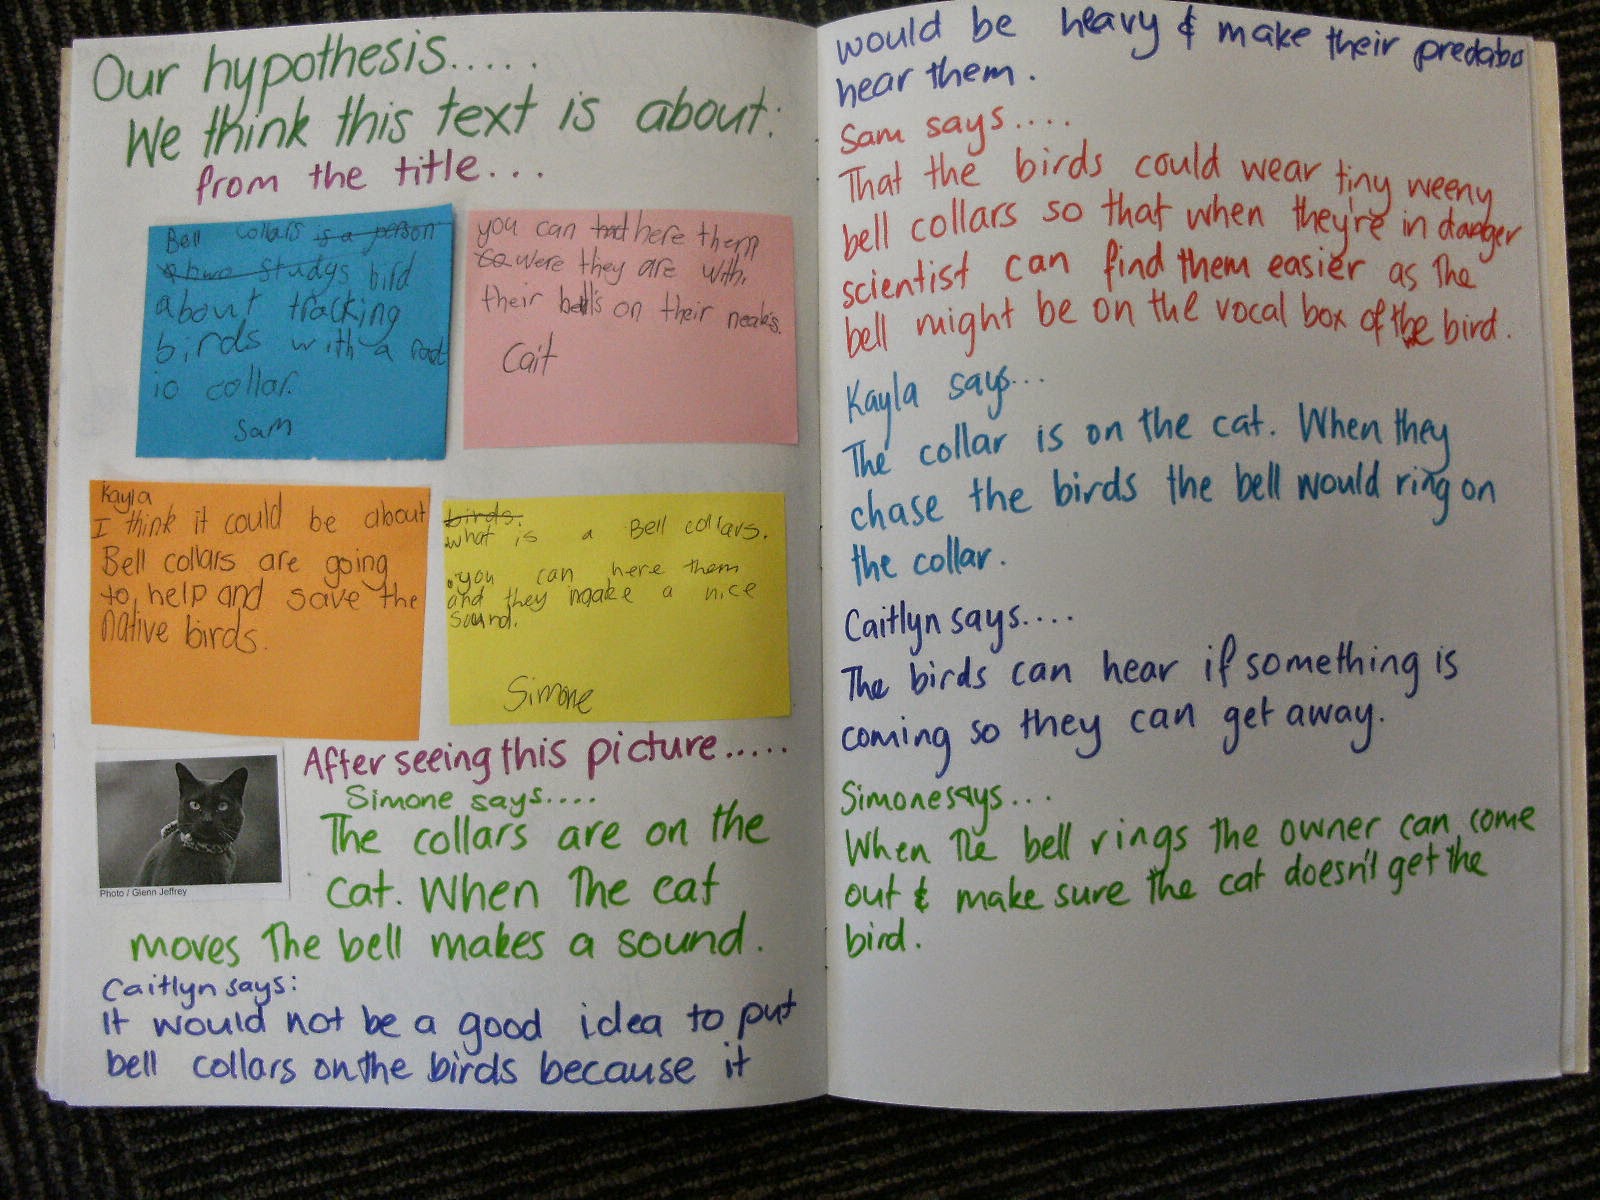 Our hypothesis.....
We think this text is about:
from the title...
Bell collars is a person
studys bird
about tracking
birds with a rad
io collar.
Sam
you can here them
so were they are with,
their bells on their neaks.
Cait
Kayla
I think it could be about
Bell collars are going
to help and save the
native birds.
birds.
what is a Bell collars.
.you can here them
and they make a nice
sound.
Simone
Photo / Glenn Jeffrey
After seeing this picture.....
Simone says....
The collars are on the
cat. When the cat
moves the bell makes a sound.
Caitlyn says:
It would not be a good idea to put
bell collars on the birds because it
would be heavy & make their predato
hear them.
Sam says....
That the birds could wear tiny weeny
bell collars so that when they're in danger
scientist can find them easier as the
bell might be on the vocal box of the bird.
Kayla says...
The collar is on the cat. When they
chase the birds the bell would ring on
the collar.
Caitlyn says....
The birds can hear if something is
coming so they can get away.
Simone says...
When the bell rings the owner can come
out & make sure the cat doesn't get the
bird.